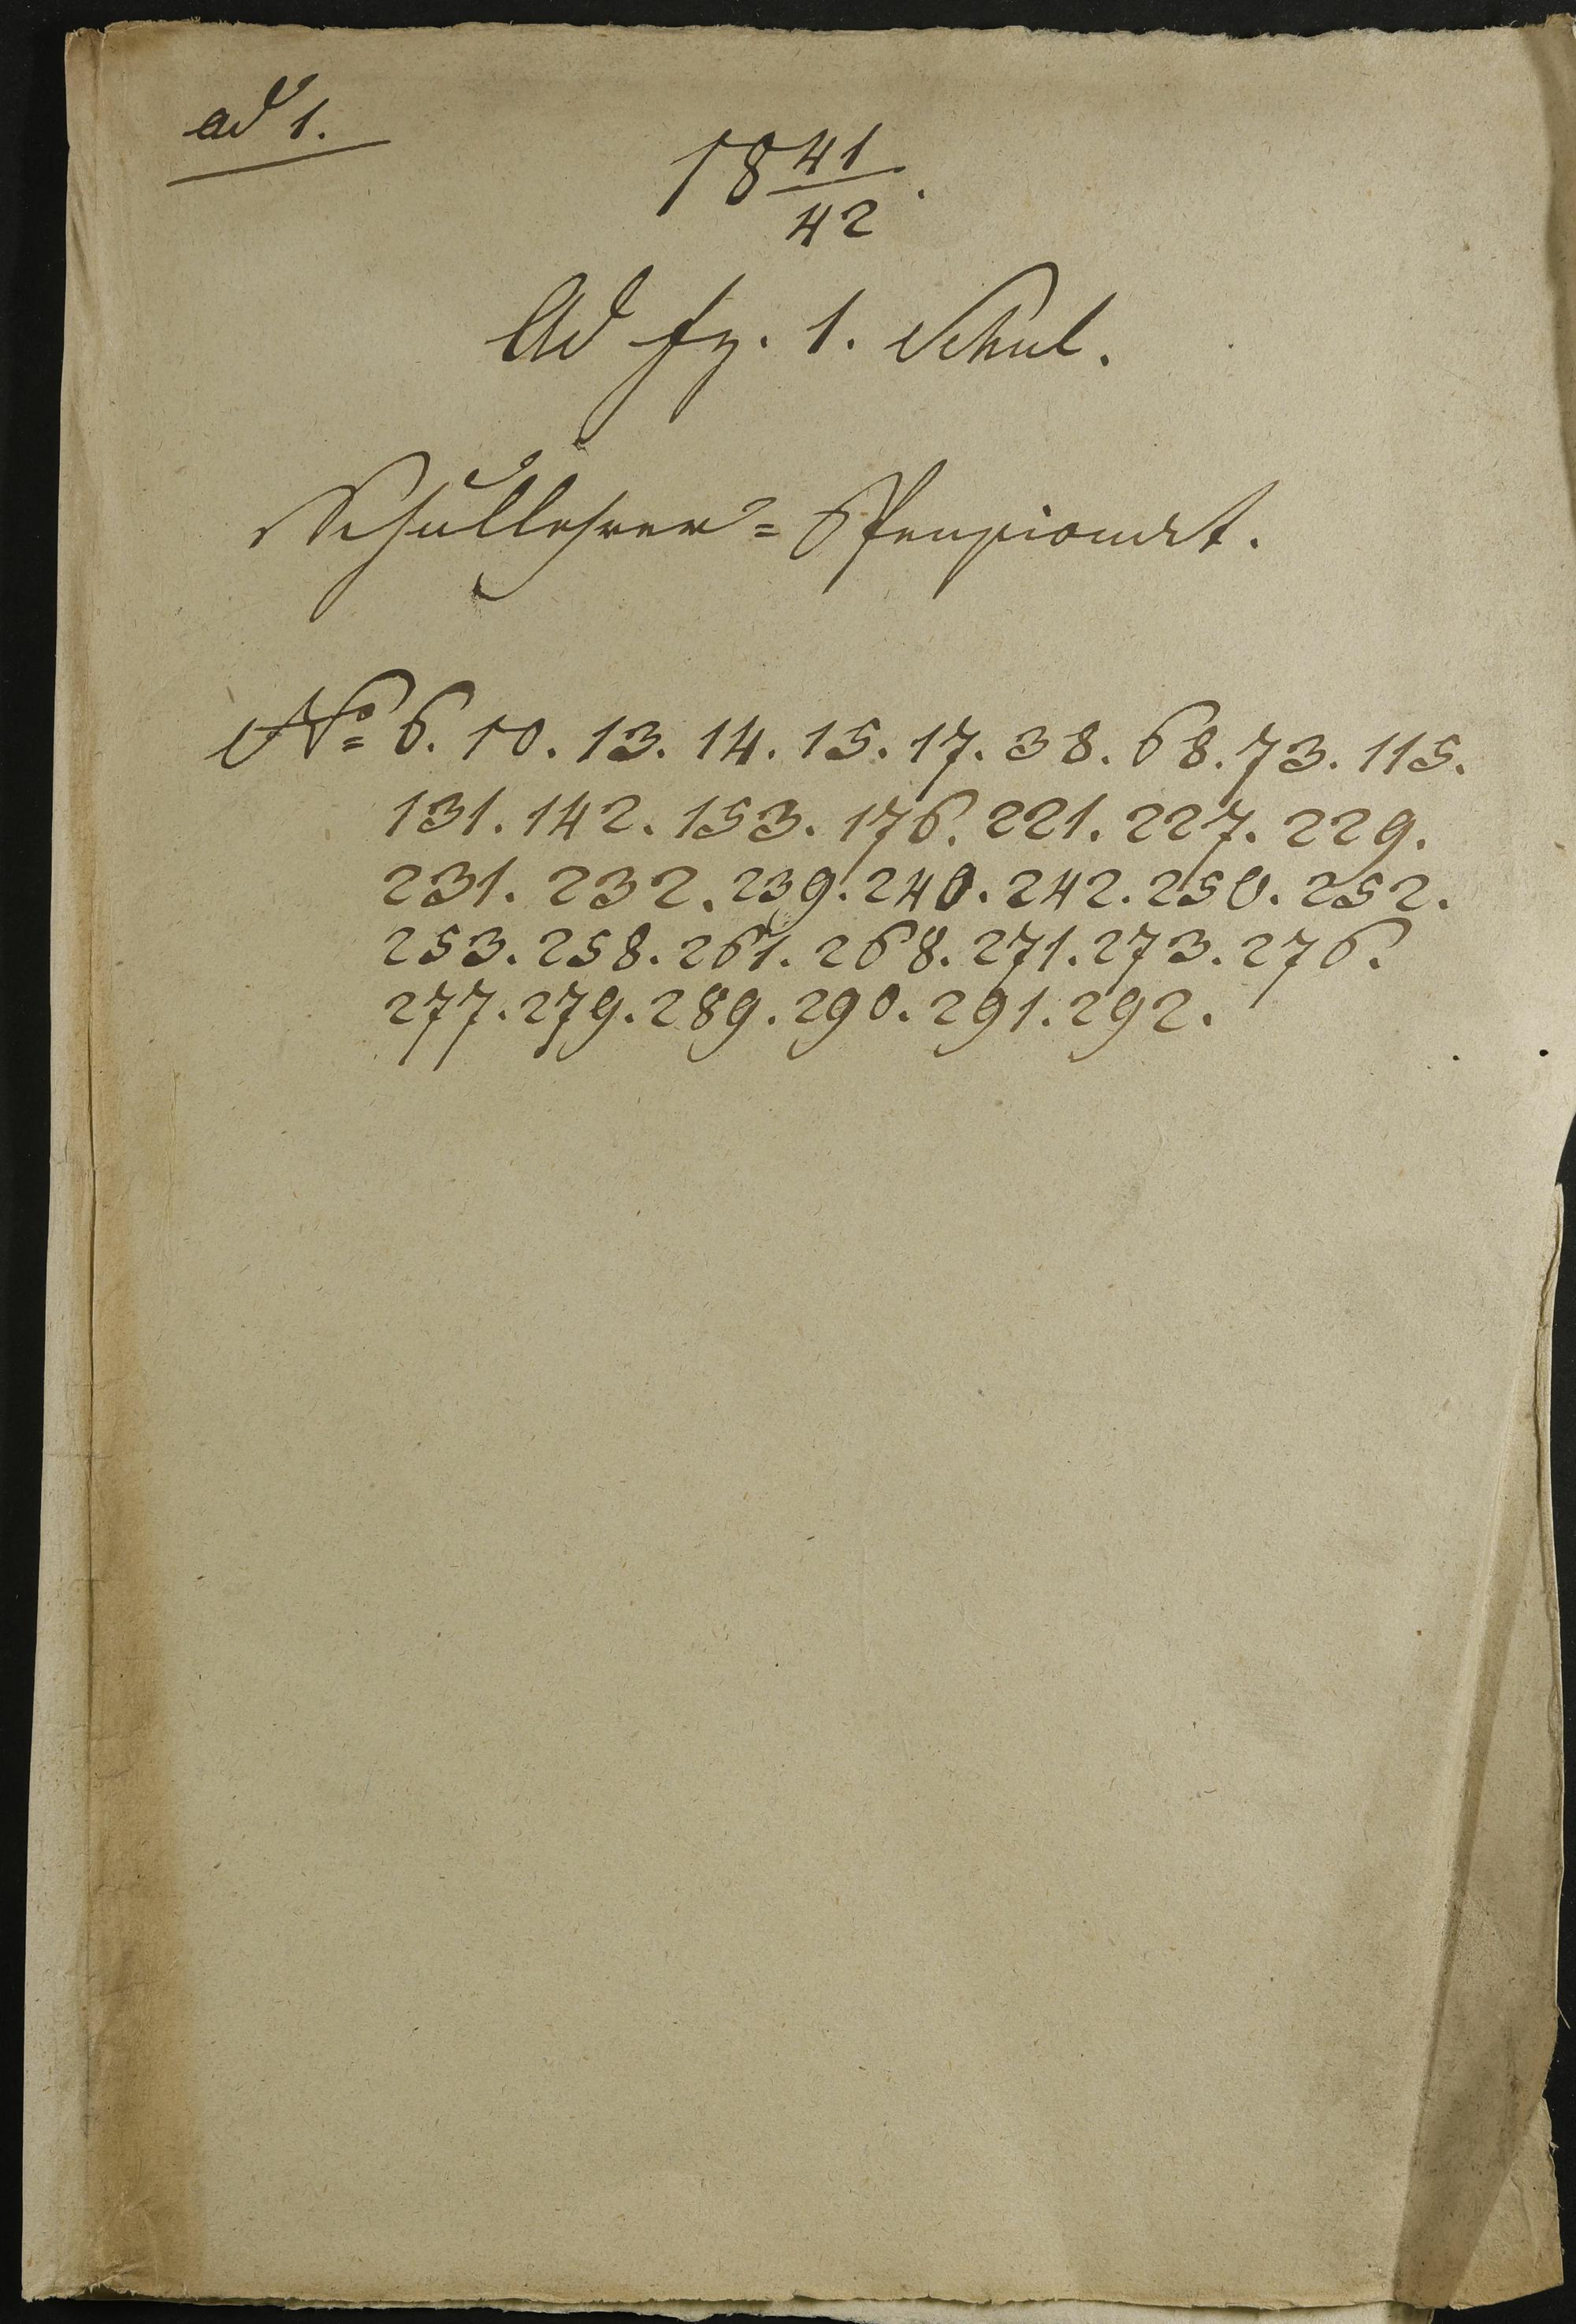 ad 1.
18 41/42.
Ad fz. 1. Schul.
Schullehrer=Pensionat.
No 6. 10. 13. 14. 15. 17. 38. 68. 73. 115.
131. 142. 153. 176. 221. 227. 229.
231. 232. 239. 240. 242. 250. 252.
253. 258. 261. 268. 271. 273. 276.
277. 279. 289. 290. 291. 292.